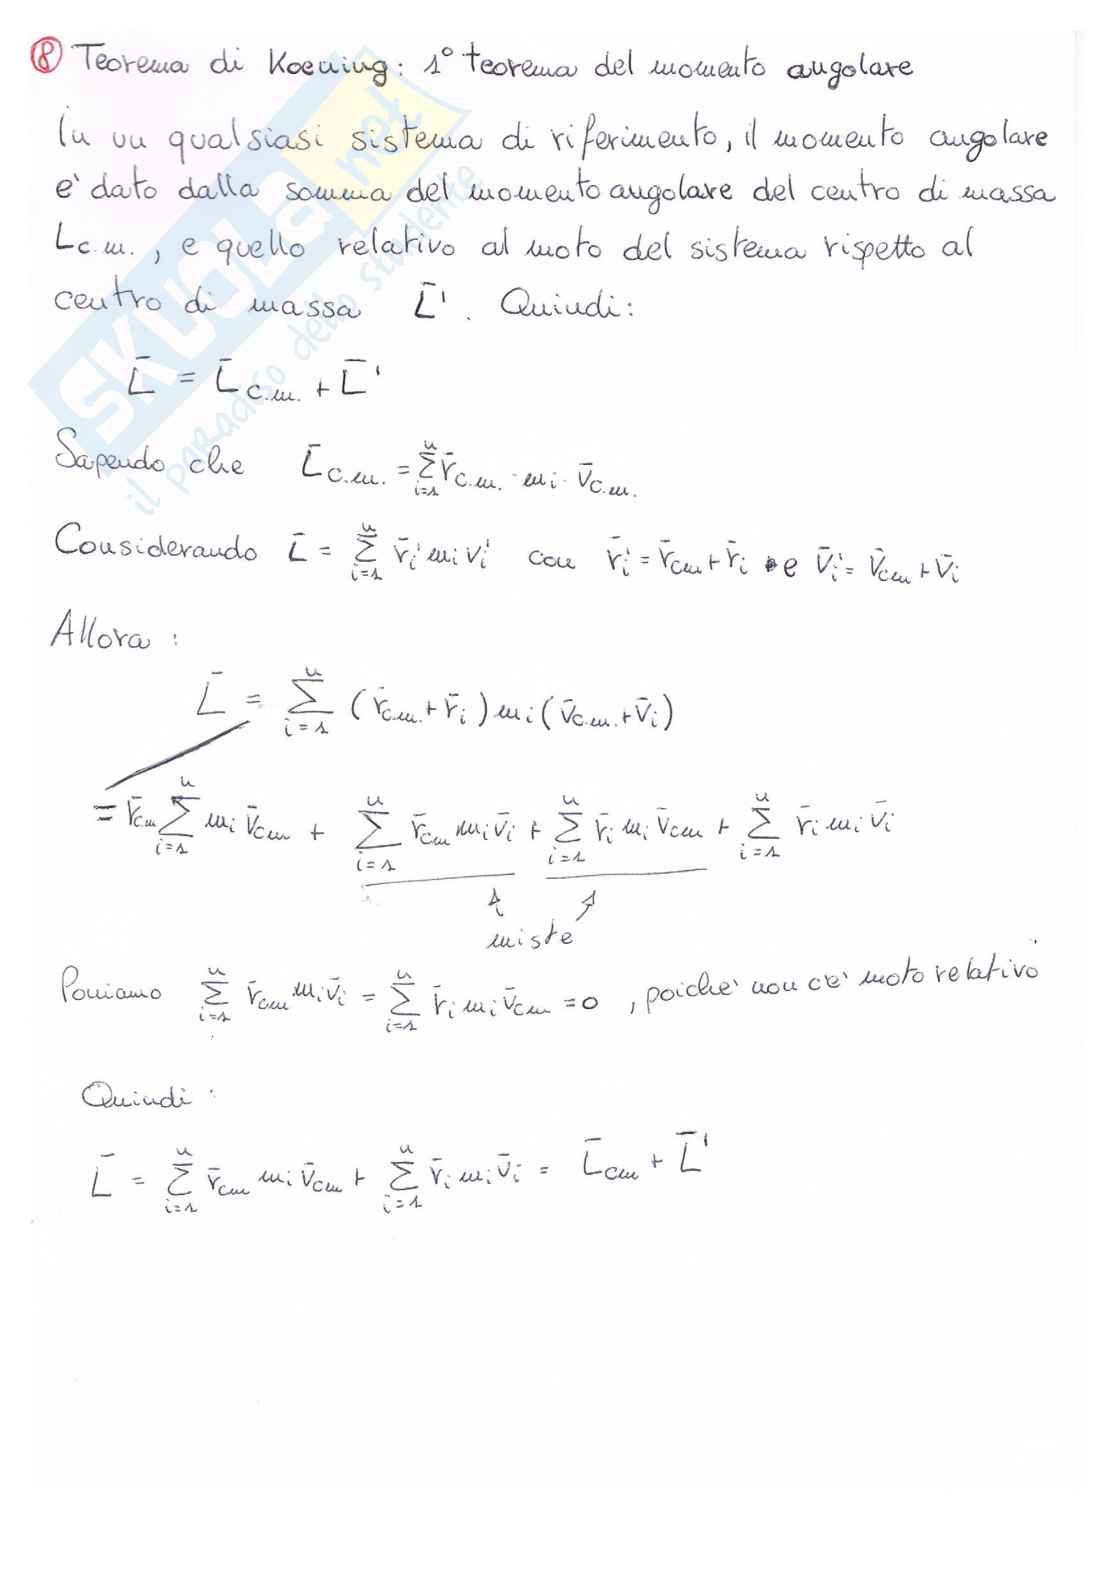 ⑧ Teorema di Koening: 1° teorema del momento angolare
In un qualsiasi sistema di riferimento, il momento angolare
e' dato dalla somma del momento angolare del centro di massa
L̄c.m., e quello relativo al moto del sistema rispetto al
centro di massa L̄'. Quindi:
L̄ = L̄c.m. + L̄'
Sapendo che L̄c.m. = Σⁿᵢ₌₁ r̄c.m. · mi · v̄c.m.
Considerando L̄ = Σⁿᵢ₌₁ r̄i' mi vi' con r̄i' = r̄cm + r̄i e v̄i' = v̄cm + v̄i
Allora:
L̄ = Σⁿᵢ₌₁ (r̄c.m. + r̄i) mi (v̄c.m. + v̄i)
= r̄cm Σⁿᵢ₌₁ mi v̄cm + Σⁿᵢ₌₁ r̄cm mi v̄i + Σⁿᵢ₌₁ r̄i mi v̄cm + Σⁿᵢ₌₁ r̄i mi v̄i
miste
Poniamo Σⁿᵢ₌₁ r̄cm mi v̄i = Σⁿᵢ₌₁ r̄i mi v̄cm = 0 , poiche' non c'e' moto relativo
Quindi:
L̄ = Σⁿᵢ₌₁ r̄cm mi v̄cm + Σⁿᵢ₌₁ r̄i mi v̄i = L̄cm + L̄'
SKUOLA.net
il paradiso dello studente